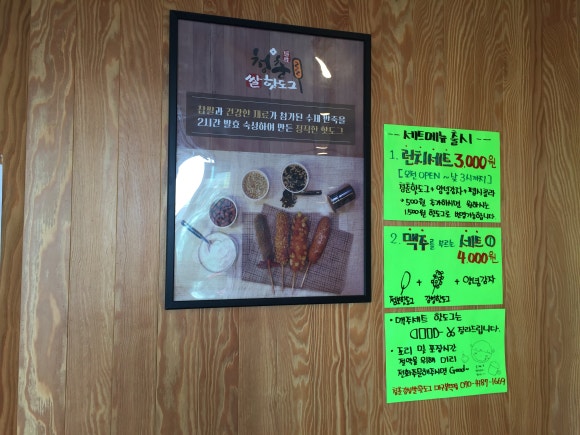 청춘
쌀핫도그
찹쌀과 건강한 재료가 첨가된 수제 반죽을
2시간 발효 숙성하여 만든 정직한 핫도그
-- 세트메뉴 출시 --
1. 런치세트 3,000원
[오전 OPEN ~ 낮 3시까지]
청춘핫도그 + 양념감자 + 펩시콜라
+ 500원 추가하시면 원하시는
1,500원 핫도그로 변경가능합니다.
2. 맥주를 부르는 세트
4,000원
+ + 양념감자
점보핫도그 감성핫도그
• 맥주세트 핫도그는
잘라드립니다.
• 조리 및 포장시간
절약을 위해 미리
전화주문해주시면 Good~
070-4187-1669